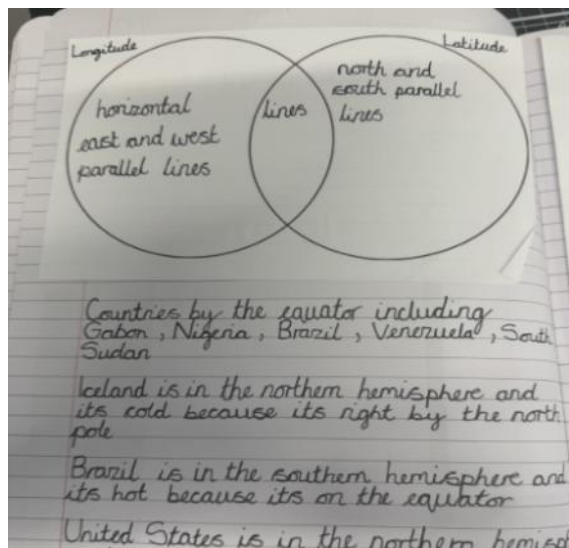 Longitude
Latitude
horizontal
east and west
parallel lines
lines
north and
south parallel
lines
Countries by the equator including
Gabon, Nigeria, Brazil, Venezuela, South
Sudan
Iceland is in the northern hemisphere and
its cold because its right by the north
pole
Brazil is in the southern hemisphere and
its hot because its on the equator
United States is in the northern